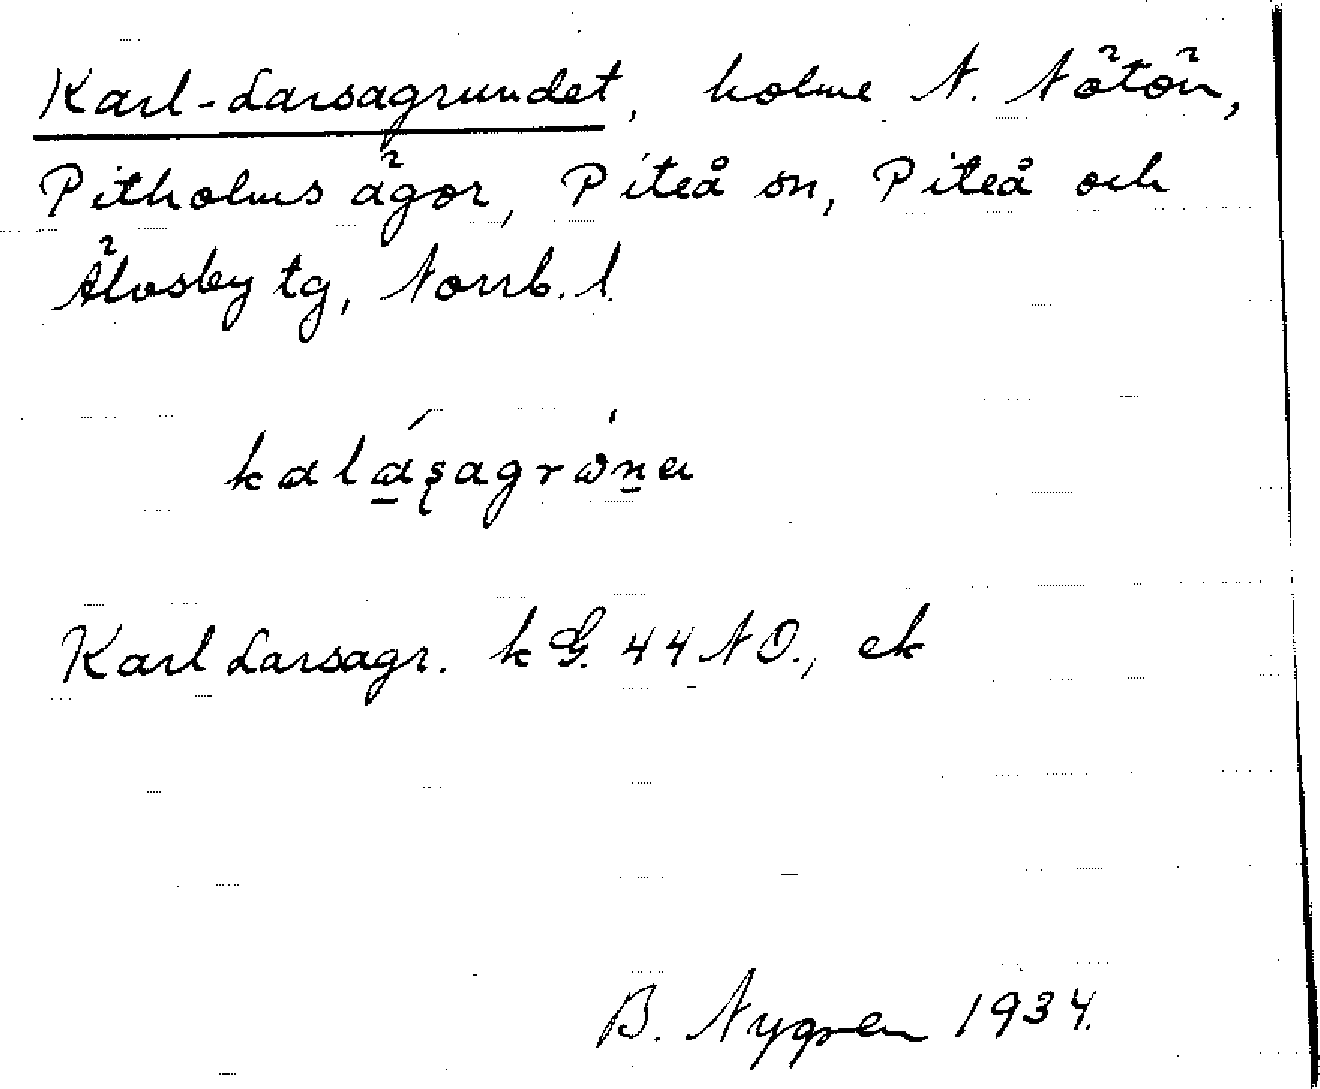 Karl-Larsagrundet, holme N. Nötön,
Pitholms ägor, Piteå sn, Piteå och
Älvsby tg, Norrb. l.
Karl Larsagr. kG. 44 NO., ek
B. Nygren 1934.